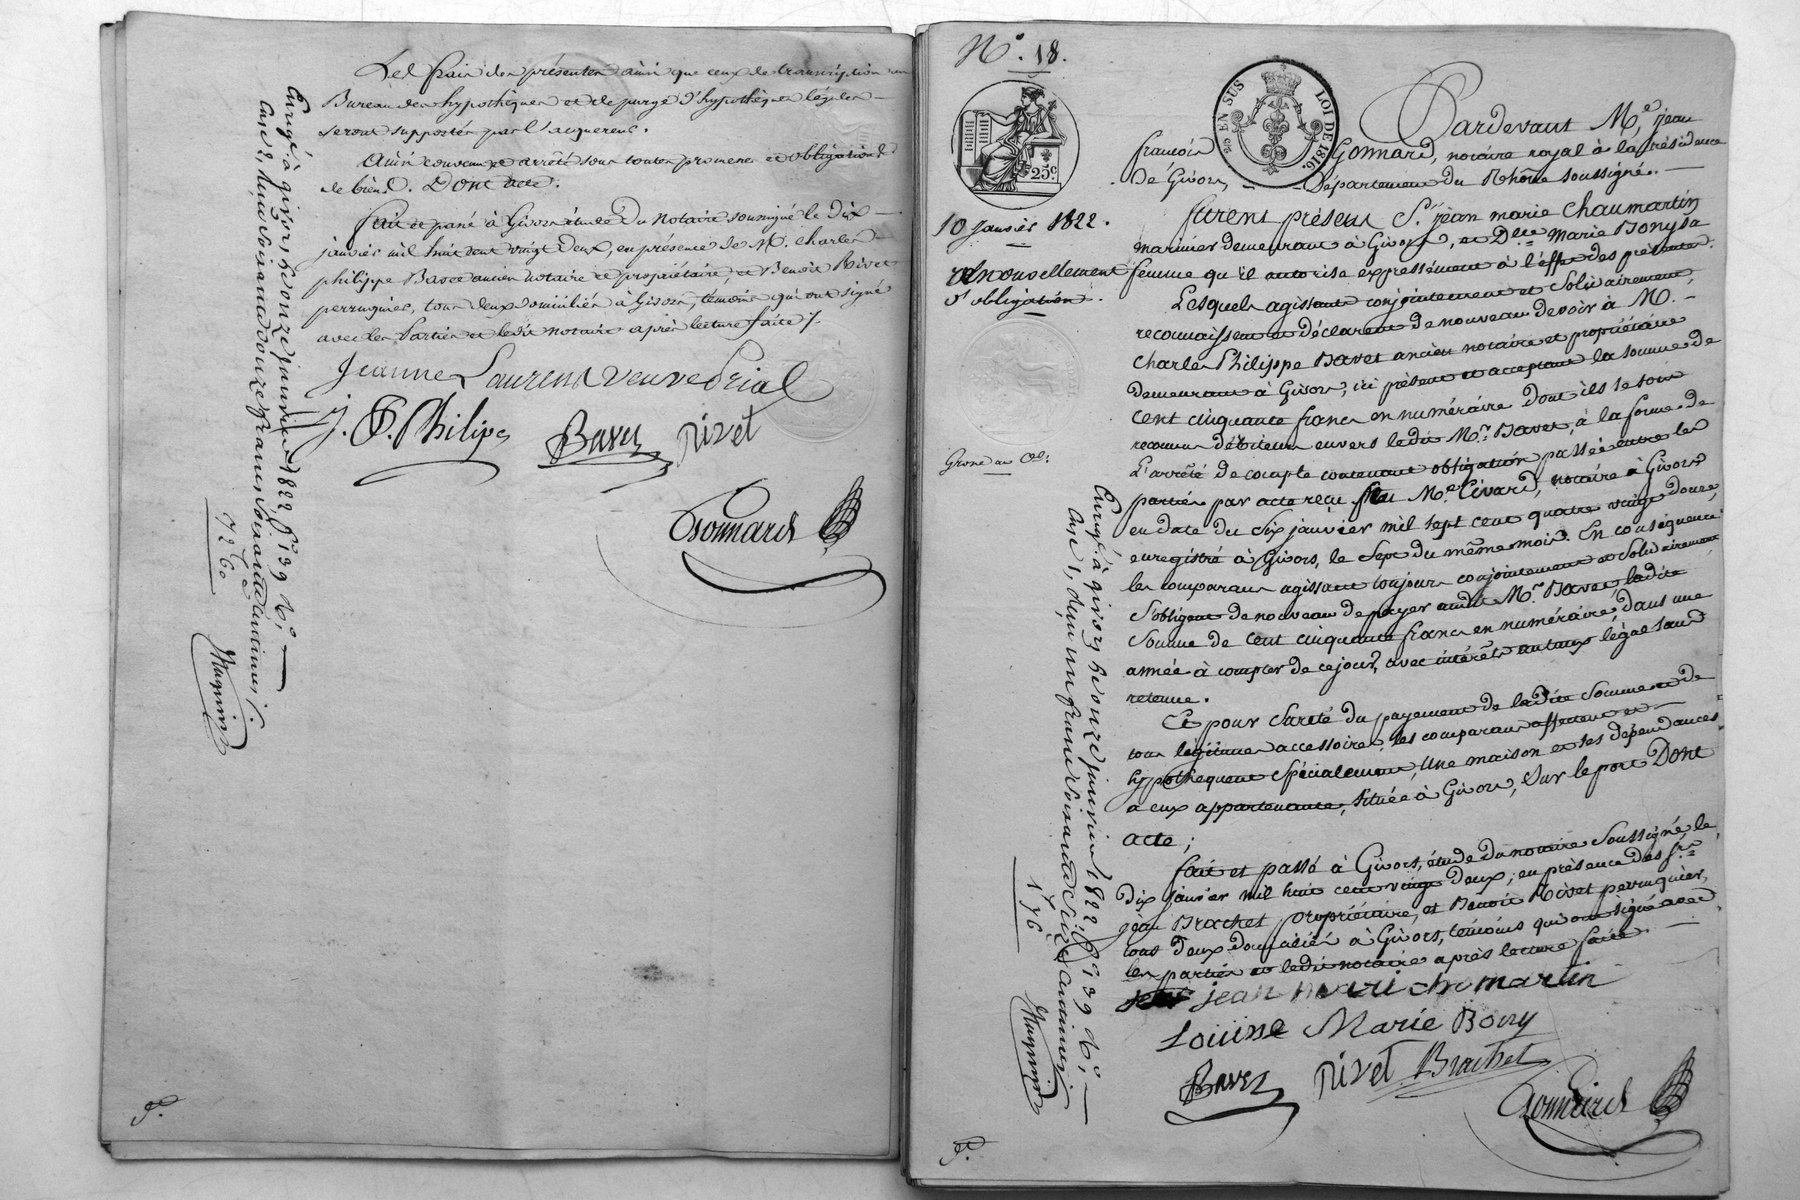 Les frais des présentes ainsi que ceux de transcription au
Bureau des hypothèques et de purge d'hypothèques légales
seront supportés par l'acquereur.
Ainsi convenu et arrêté sous toutes promesses et obligations
de biens. Dont acte.
fait et passé à Givors étude du notaire soussigné le dix
janvier mil huit cent vingt deux, en présence de M. charles
philippe Bavet ancien notaire et propriétaire, et Benoit Rivet
perruquier, tous deux domiciliés à Givors, témoins qui ont signé
avec les parties et ledit notaire après lecture faite /.
Jeanne Laurend veuve
J. P. Philipe
Bavet Rivet
Gonnard
Enregé à givors le onze janvier 1822, fo 139 Vo
Case 2, reçu soixante douze francs soixante centimes
72 60
N°. 18.
EN SUS
LOI DE 1816.
25c
Pardevant Me. jean
francois Gonnard, notaire royal à la résidence
De Givors, Département du Rhône soussigné.
10 Janvier 1822.
Renouvellement
d'obligation.
furent présens Sr. jean marie Chaumartin
marinier demeurant à Givors, et Dlle Marie Bony sa
femme qu'il autorise expressément à l'effet des présentes.
Lesquels agissant conjointement et solidairement,
reconnaissent et déclarent de nouveau devoir à M.
Charles Philippe Bavet ancien notaire et propriétaire
demeurant à Givors, ici présent et acceptant la somme de
Cent cinquante francs en numéraire dont ils se sont
reconnus débiteurs envers ledit Mr. Bavet, à la forme de
L'arrêté de compte contenant obligation passée entre les
parties par acte reçu Me. notaire à Givors
en date du six janvier mil sept cent quatre vingt douze,
enregistré à Givors, le sept du même mois. En conséquence
les comparans agissant toujours conjointement et solidairement
s'obligent de nouveau de payer audit Mr. Bavet, ladite
Somme de cent cinquante francs en numéraire, dans une
année à compter de ce jour, avec intérêts au taux légal sans
retenue.
Et pour sureté du payement de ladite somme et de
tous legitimes accessoires, les comparans affectent et
hypothequent spécialement, une maison et ses dépendances
a eux appartenante, située à Givors, sur le port Dont
acte;
fait et passé à Givors, étude du notaire soussigné, le
Dix janvier mil huit cent vingt deux, en présence des srs
jean Brachet propriétaire, et Benoit Rivet perruquier,
tous deux domiciliés à Givors, témoins qui ont signé avec
les parties et ledit notaire après lecture faite.
jean mari chomartin
Louise Marie Bony
Bavet Rivet Brachet
Gonnard
Enregé à givors le onze janvier 1822, fo 139 Vo
Case 1, reçu un franc soixante seize centimes
1 76